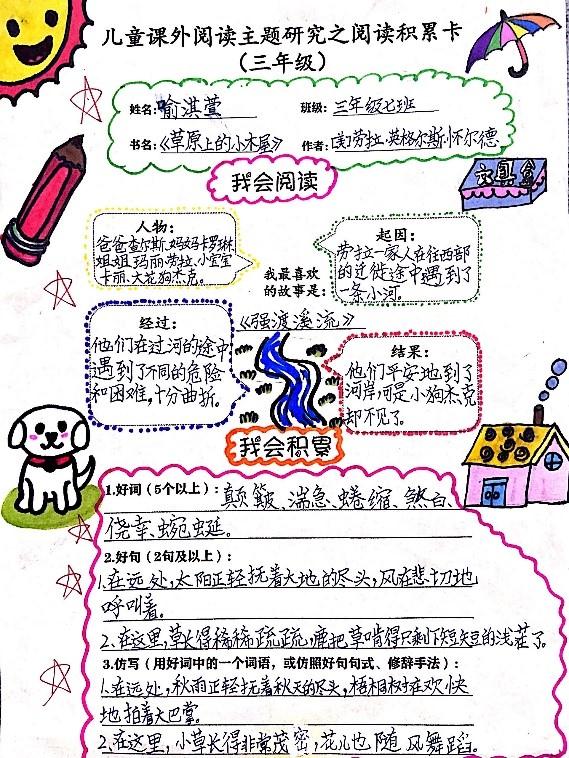 儿童课外阅读主题研究之阅读积累卡
（三年级）
姓名：喻淇萱 班级：三年级七班
书名：《草原上的小木屋》 作者：[美]劳拉.英格尔斯.怀尔德
我会阅读
文具盒
人物：
爸爸查尔斯、妈妈卡罗琳、
姐姐玛丽、劳拉、小宝宝
卡丽、大花狗杰克。
起因：
劳拉一家人在往西部
的迁徙途中遇到了
一条小河。
我最喜欢
的故事是：
《强渡溪流》
经过：
他们在过河的途中
遇到了不同的危险
和困难，十分曲折。
结果：
他们平安地到了
河岸，可是小狗杰克
却不见了。
我会积累
1.好词（5个以上）：颠簸、湍急、蜷缩、煞白、
侥幸、蜿蜒。
2.好句（2句及以上）：
1、在远处，太阳正轻抚着大地的尽头，风在悲切地
呼叫着。
2、在这里，草长得稀稀疏疏，鹿把草啃得只剩下短短的浅茬了。
3.仿写（用好词中的一个词语，或仿照好句句式、修辞手法）：
1、在远处，秋雨正轻抚着秋天的尽头，梧桐树在欢快
地拍着大巴掌。
2、在这里，小草长得非常茂密，花儿也随风舞蹈。